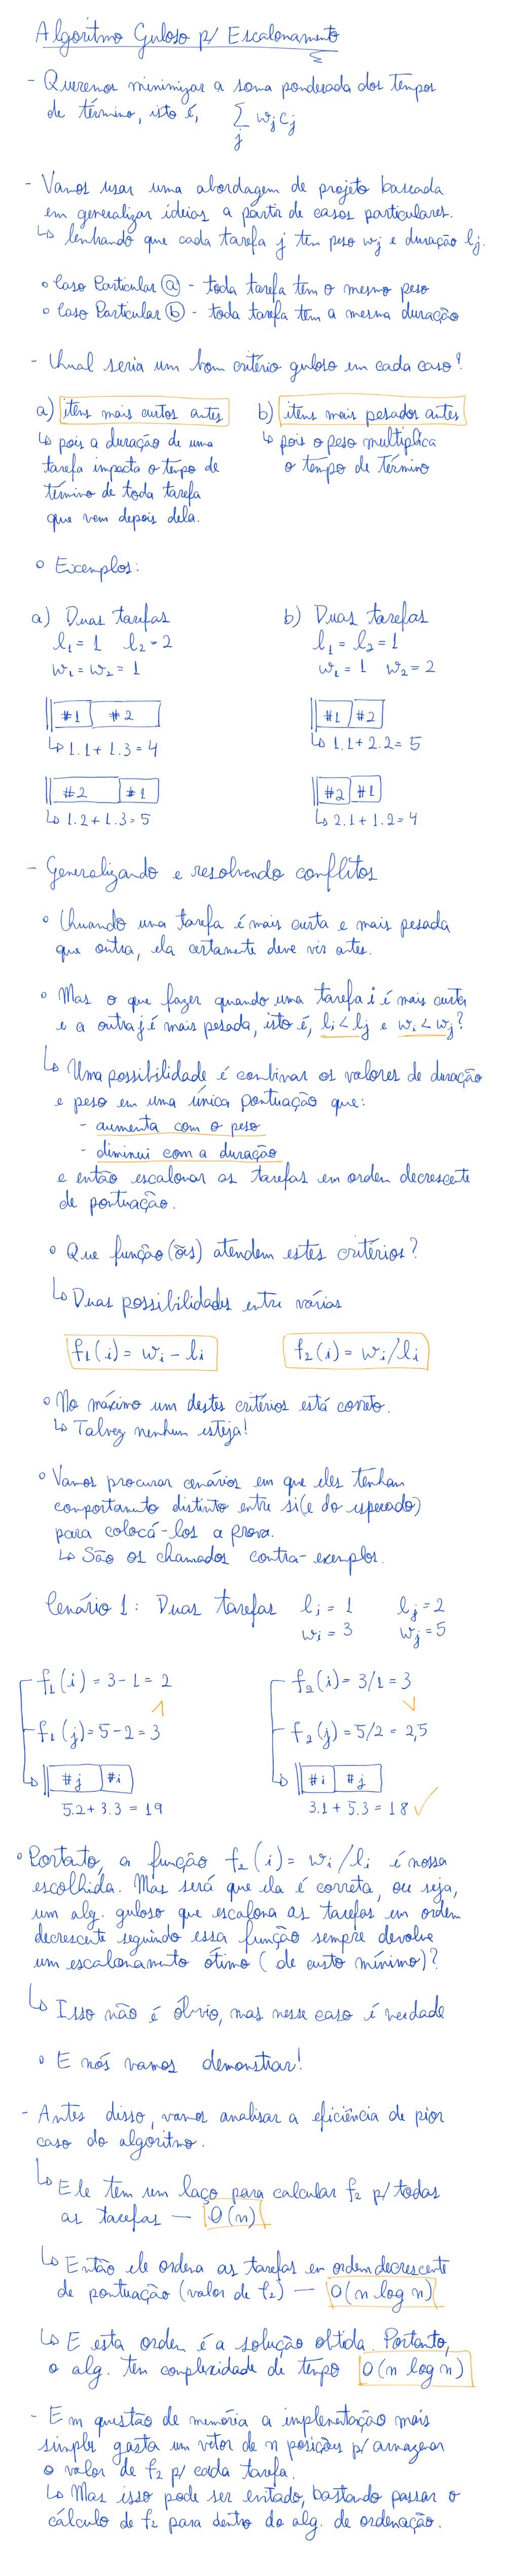 Algoritmo Guloso p/ Escalonamento
- Queremos minimizar a soma ponderada dos tempos
de término, isto é, ∑ wj cj
j
- Vamos usar uma abordagem de projeto baseada
em generalizar ideias a partir de casos particulares.
↳ lembrando que cada tarefa j tem peso wj e duração lj.
o Caso Particular ⓐ - toda tarefa tem o mesmo peso
o Caso Particular ⓑ - toda tarefa tem a mesma duração
- Qual seria um bom critério guloso em cada caso?
a) itens mais curtos antes
↳ pois a duração de uma
tarefa impacta o tempo de
término de toda tarefa
que vem depois dela.
b) itens mais pesados antes
↳ pois o peso multiplica
o tempo de término
o Exemplos:
a) Duas tarefas
l1 = 1 l2 = 2
w1 = w2 = 1
#1 #2
↳ 1.1 + 1.3 = 4
#2 #1
↳ 1.2 + 1.3 = 5
b) Duas tarefas
l1 = l2 = 1
w1 = 1 w2 = 2
#1 #2
↳ 1.1 + 2.2 = 5
#2 #1
↳ 2.1 + 1.2 = 4
- Generalizando e resolvendo conflitos
o Quando uma tarefa é mais curta e mais pesada
que outra, ela certamente deve vir antes.
o Mas o que fazer quando uma tarefa i é mais curta
e a outra j é mais pesada, isto é, li < lj e wi < wj?
↳ Uma possibilidade é combinar os valores de duração
e peso em uma única pontuação que:
- aumenta com o peso
- diminui com a duração
e então escalonar as tarefas em ordem decrescente
de pontuação.
o Que função(ões) atendem estes critérios?
↳ Duas possibilidades entre várias
f1(i) = wi - li f2(i) = wi/li
o No máximo um destes critérios está correto.
↳ Talvez nenhum esteja!
o Vamos procurar cenários em que eles tenham
comportamento distinto entre si (e do esperado)
para colocá-los a prova.
↳ São os chamados contra-exemplos.
Cenário 1: Duas tarefas li = 1 lj = 2
wi = 3 wj = 5
f1(i) = 3 - 1 = 2
^
f1(j) = 5 - 2 = 3
↳ #j #i
5.2 + 3.3 = 19
f2(i) = 3/1 = 3
v
f2(j) = 5/2 = 2,5
↳ #i #j
3.1 + 5.3 = 18 ✓
o Portato, a função f2(i) = wi/li é nossa
escolhida. Mas será que ela é correta, ou seja,
um alg. guloso que escalona as tarefas em ordem
decrescente seguindo essa função sempre devolve
um escalonamento ótimo (de custo mínimo)?
↳ Isso não é óbvio, mas nesse caso é verdade
o E nós vamos demonstrar!
- Antes disso, vamos analisar a eficiência de pior
caso do algoritmo.
↳ Ele tem um laço para calcular f2 p/ todas
as tarefas — O(n)
↳ Então ele ordena as tarefas em ordem decrescente
de pontuação (valor de f2) — O(n log n)
↳ E esta ordem é a solução obtida. Portanto,
o alg. tem complexidade de tempo O(n log n)
- Em questão de memória a implementação mais
simples gasta um vetor de n posições p/ armazenar
o valor de f2 p/ cada tarefa.
↳ Mas isso pode ser evitado, bastando passar o
cálculo de f2 para dentro do alg. de ordenação.